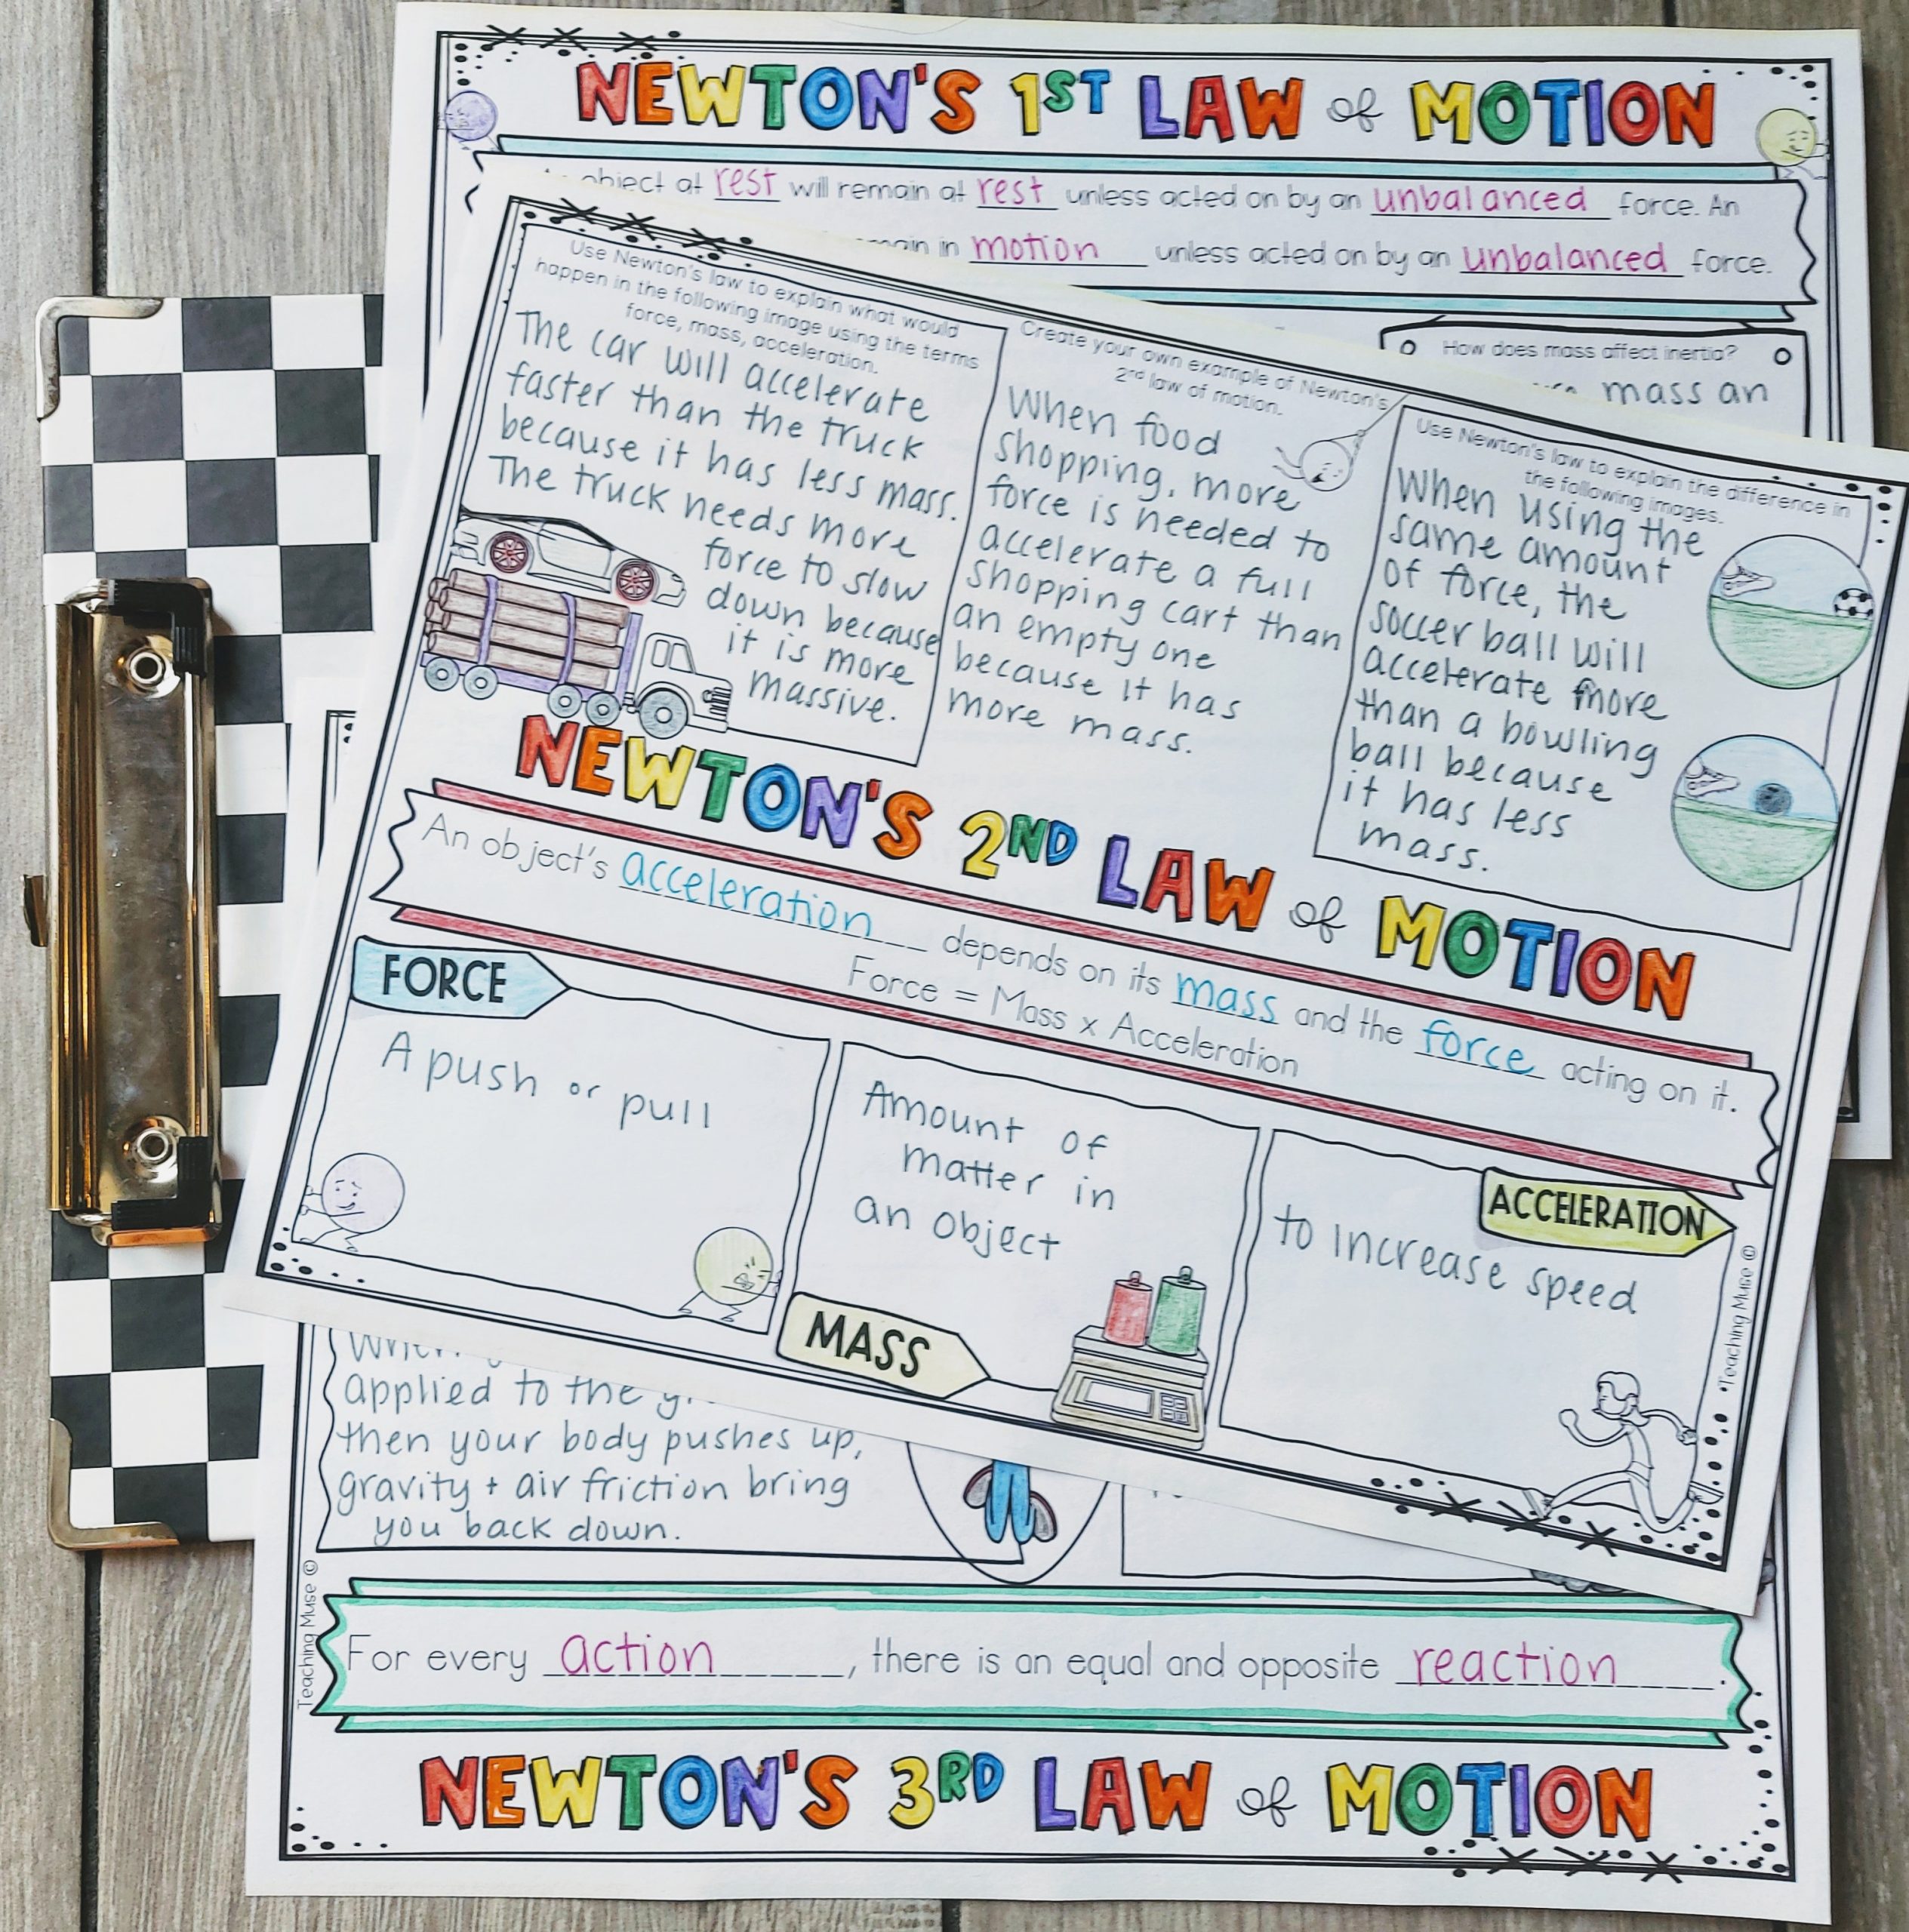 NEWTON'S 1ST LAW of MOTION
object at rest will remain at rest unless acted on by an unbalanced force. An
in motion unless acted on by an unbalanced force.
How does mass affect inertia?
mass an
Use Newton's law to explain what would
happen in the following image using the terms
force, mass, acceleration.
The car will accelerate
faster than the truck
because it has less mass.
The truck needs more
force to slow
down because
it is more
massive.
Create your own example of Newton's
2nd law of motion.
When food
shopping, more
force is needed to
accelerate a full
shopping cart than
an empty one
because it has
more mass.
Use Newton's law to explain the difference in
the following images.
When using the
same amount
of force, the
soccer ball will
accelerate more
than a bowling
ball because
it has less
mass.
NEWTON'S 2ND LAW of MOTION
An object's acceleration depends on its mass and the force acting on it.
Force = Mass x Acceleration
FORCE
A push or pull
Amount of
matter in
an object
MASS
ACCELERATION
to increase speed
•Teaching Muse ©
applied to the
then your body pushes up,
gravity + air friction bring
you back down.
Teaching Muse ©
For every action, there is an equal and opposite reaction.
NEWTON'S 3RD LAW of MOTION